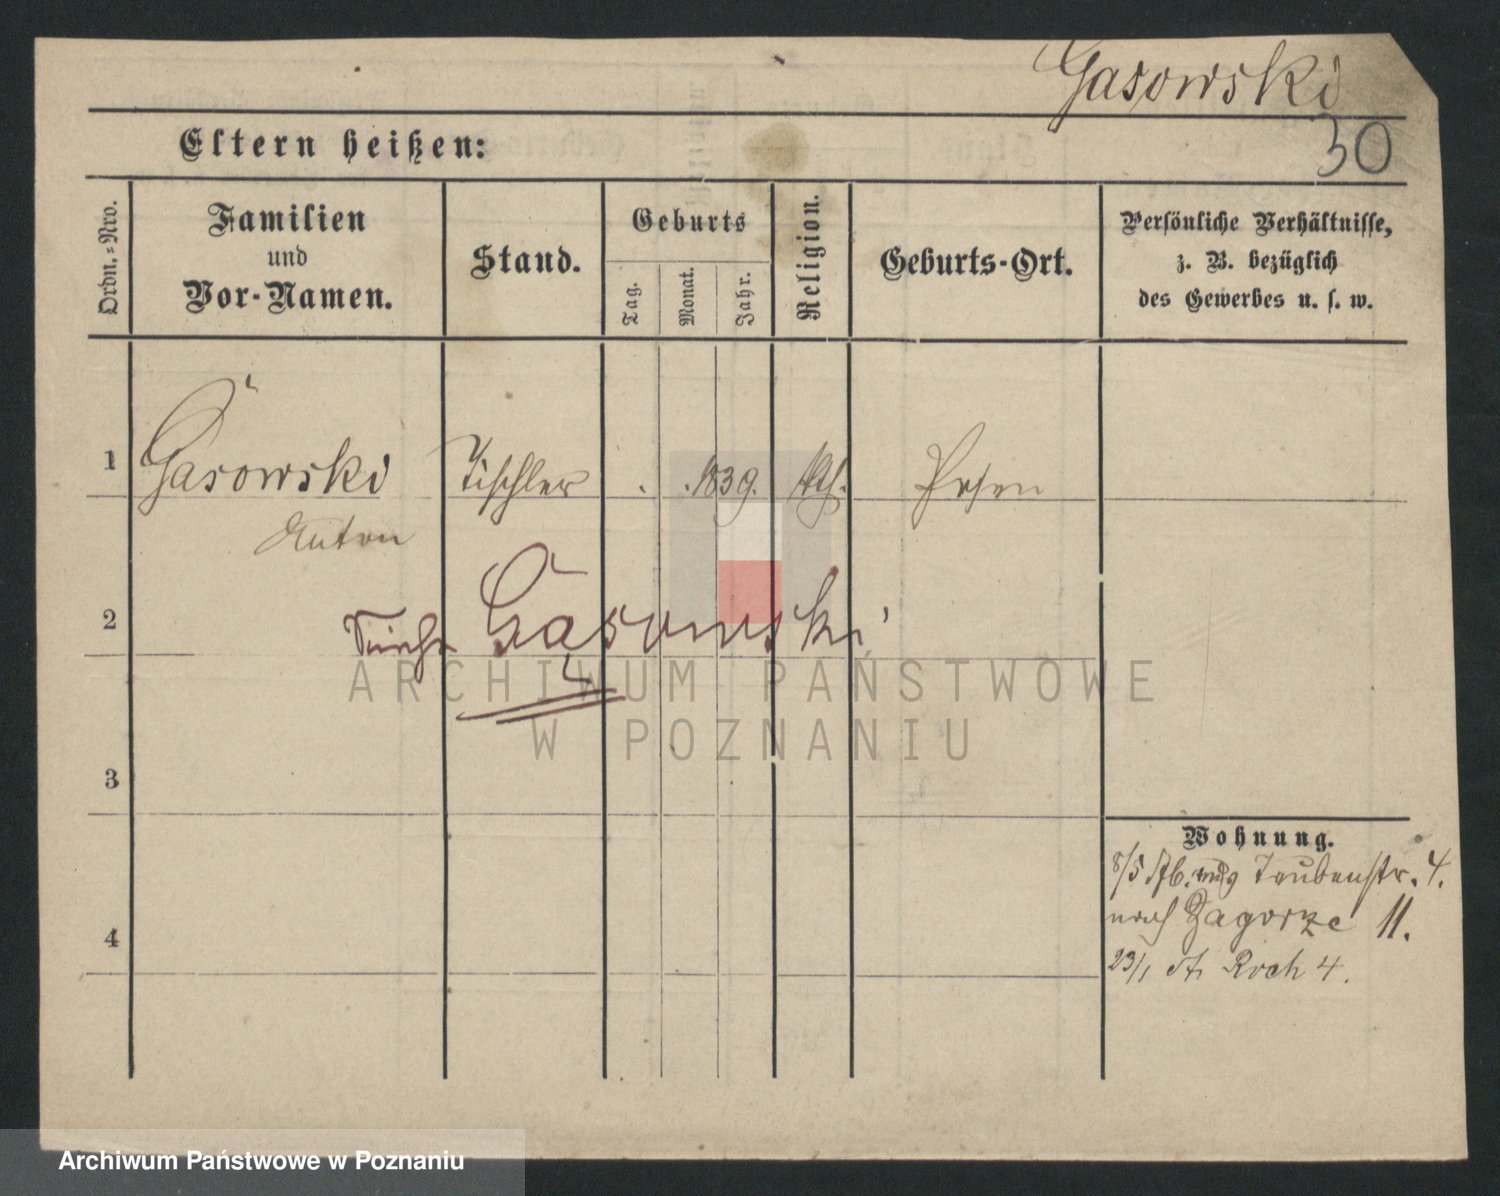 Gasowski
30
Eltern heißen:
Ordn.-Nro.
Familien
und
Vor-Namen.
Stand.
Geburts
Tag.
Monat.
Jahr.
Religion.
Geburts-Ort.
Persönliche Verhältnisse,
z. B. bezüglich
des Gewerbes u. s. w.
1 Gasowski Tischler . . 1839. kth. Posen
Anton
2 Siehe Gąsowski
ARCHIWUM PAŃSTWOWE
W POZNANIU
3
Wohnung.
8/5 Taubenstr. 4.
nach Zagorze 11.
4
23/1 St. Roch 4.
Archiwum Państwowe w Poznaniu